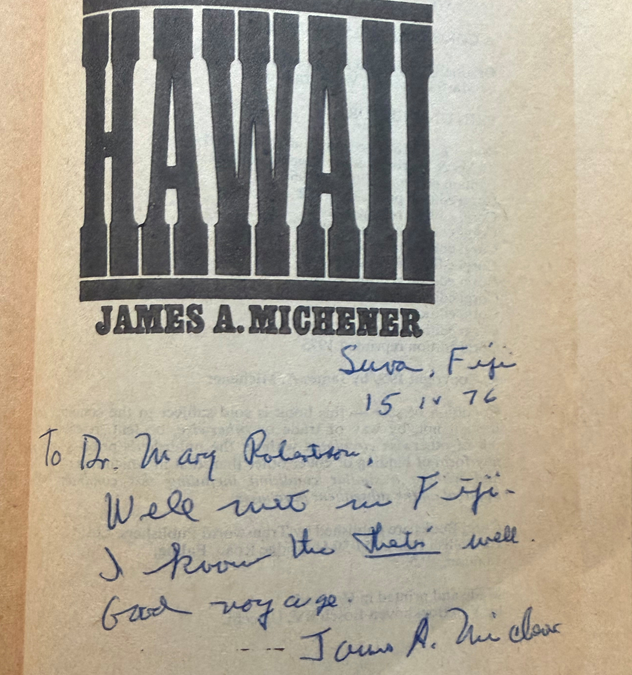 HAWAII
JAMES A. MICHENER
Suva, Fiji
15 IV 76
To Dr. Mary Robertson,
Well met in Fiji.
I know the well.
Good voyage.
--- James A. Michener